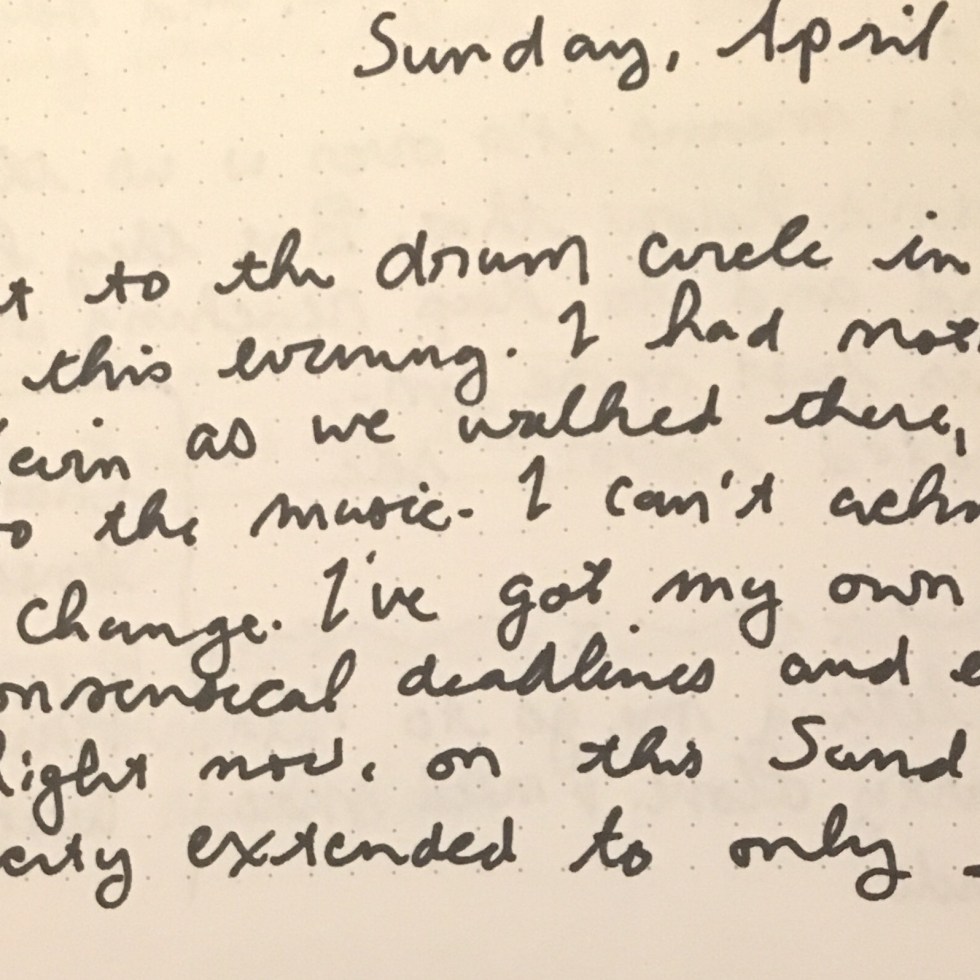 Sunday, April
t to the drum circle in
this evening. I had not
as we walked there,
to the music. I can't
change. I've got my own
nonsensical deadlines and
light now, on this Sund
city extended to only